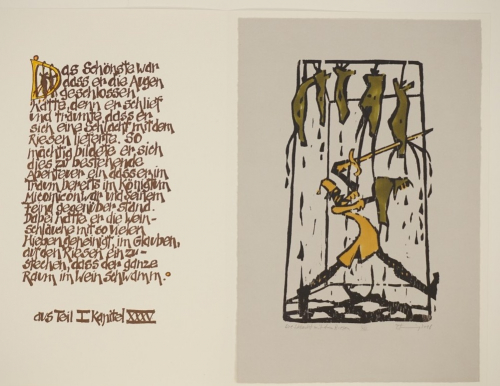 Das Schönste war
dass er die Augen
geschlossen
hatte, denn er schlief
und träumte dass er
sich eine Schlacht mit dem
Riesen lieferte. So
mächtig bildete er sich
dies zu bestehende
Abenteuer ein dass er im
Traum bereits im Königtum
Micomicon war und seinem
Feind gegenüber stand.
Dabei hatte er die Wein-
schläuche mit so vielen
Hieben gepeinigt, im Glauben,
auf den Riesen ein zu-
stechen, dass der ganze
Raum im Wein schwamm.
aus Teil I Kapitel XXXV